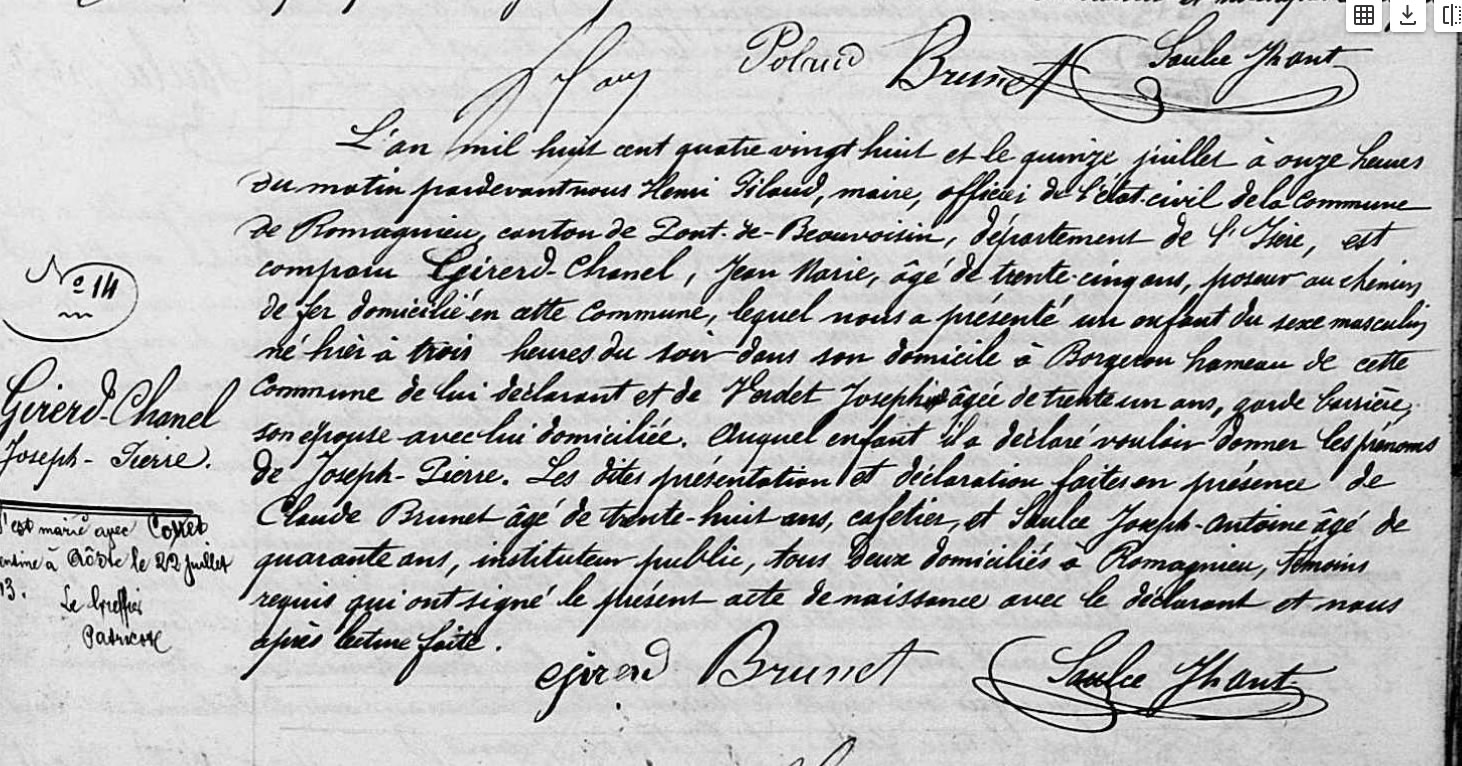 Poland Brunet Saulce Jh ant
L'an mil huit cent quatre vingt huit et le quinze juillet à onze heures
du matin pardevant nous Henri Filaud, maire, officier de l'état-civil de la Commune
de Romagnieu, canton de Pont-de-Beauvoisin, département de l'Isère, est
comparu Girerd-Chanel, Jean Marie, âgé de trente-cinq ans, poseur au chemin
de fer domicilié en cette Commune, lequel nous a présenté un enfant du sexe masculin
né hier à trois heures du soir dans son domicile à hameau de cette
Commune de lui déclarant et de Verdet Joséphine âgée de trente un ans, garde barrière,
son épouse avec lui domiciliée. Auquel enfant il a déclaré vouloir donner les prénoms
de Joseph-Pierre. Les dites présentation et déclaration faites en présence de
Claude Brunet âgé de trente-huit ans, cafetier, et Saulce Joseph-Antoine âgé de
quarante ans, instituteur public, tous deux domiciliés à Romagnieu, témoins
requis qui ont signé le présent acte de naissance avec le déclarant et nous
après lecture faite.
girerd Brunet Saulce Jh ant
No 14
Girerd-Chanel
Joseph-Pierre.
S'est marié avec
à Aôste le 22 juillet
13.
Le Greffier